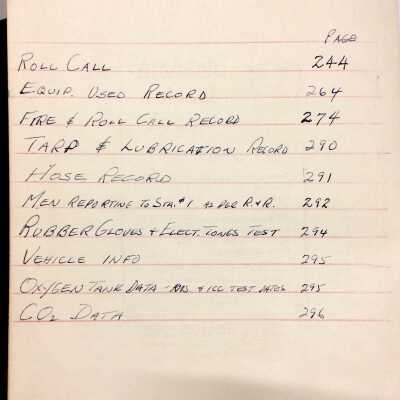 PAGE
ROLL CALL 244
EQUIP. USED RECORD 264
FIRE & ROLL CALL RECORD 274
TARP & LUBRICATION RECORD 290
HOSE RECORD 291
MEN REPORTING TO STA. #1 AS PER R.&R. 292
RUBBER GLOVES & ELECT. TONGS TEST 294
VEHICLE INFO 295
OXYGEN TANK DATA - & ICC TEST DATES 295
CO2 DATA 296